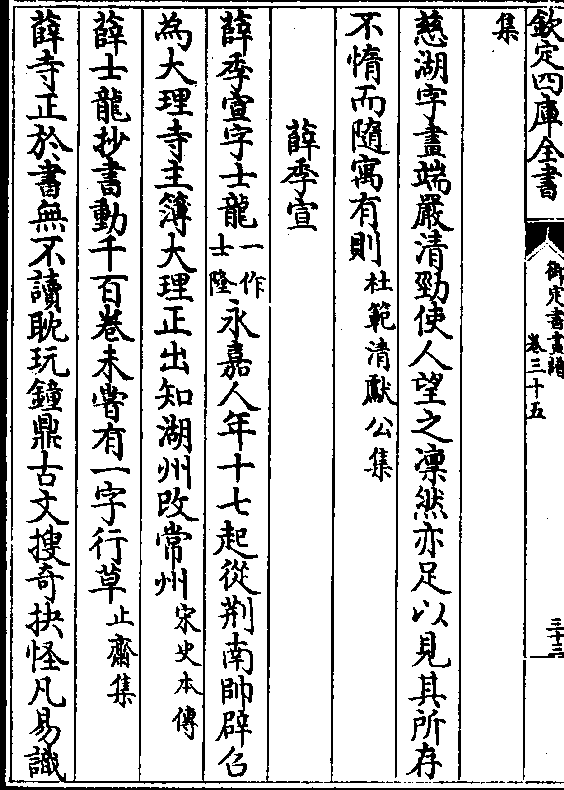 欽定四庫全書
御定書畫譜
卷三十五
三十三
集
慈湖字畫端嚴清勁使人望之凛然亦足以見其所存
不惰而隨寓有則杜範清獻公集
薛季宣
薛季宣字士龍一作士隆永嘉人年十七起從荆南帥辟召
為大理寺主簿大理正出知湖州改常州宋史本傳
薛士龍抄書動千百卷未嘗有一字行草止齋集
薛寺正於書無不讀耽玩鐘鼎古文搜奇抉怪凡易識